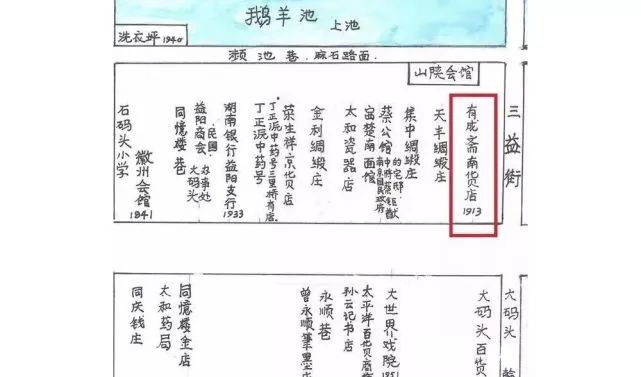 鹅羊池 上池
洗衣坪 1940
濒池巷. 麻石路面.
山陕会馆
三益街
有成斋南货店 1913
天丰绸缎庄
集中绸缎庄
蔡公馆
的宅邸.
富楚南面馆
太和瓷器店
金利绸缎庄
荣生祥京货店
丁正派中药号
湖南银行益阳支行 1933
民国.
益阳商会
办事处
大码头
同憶楼巷
徽州会馆 1841
石码头小学
大码头
大码头百货
大世界戏院
太平洋百货商
孙云记书店
永顺巷
曾永顺笔墨店
同憶楼金店
太和药局
同庆钱庄